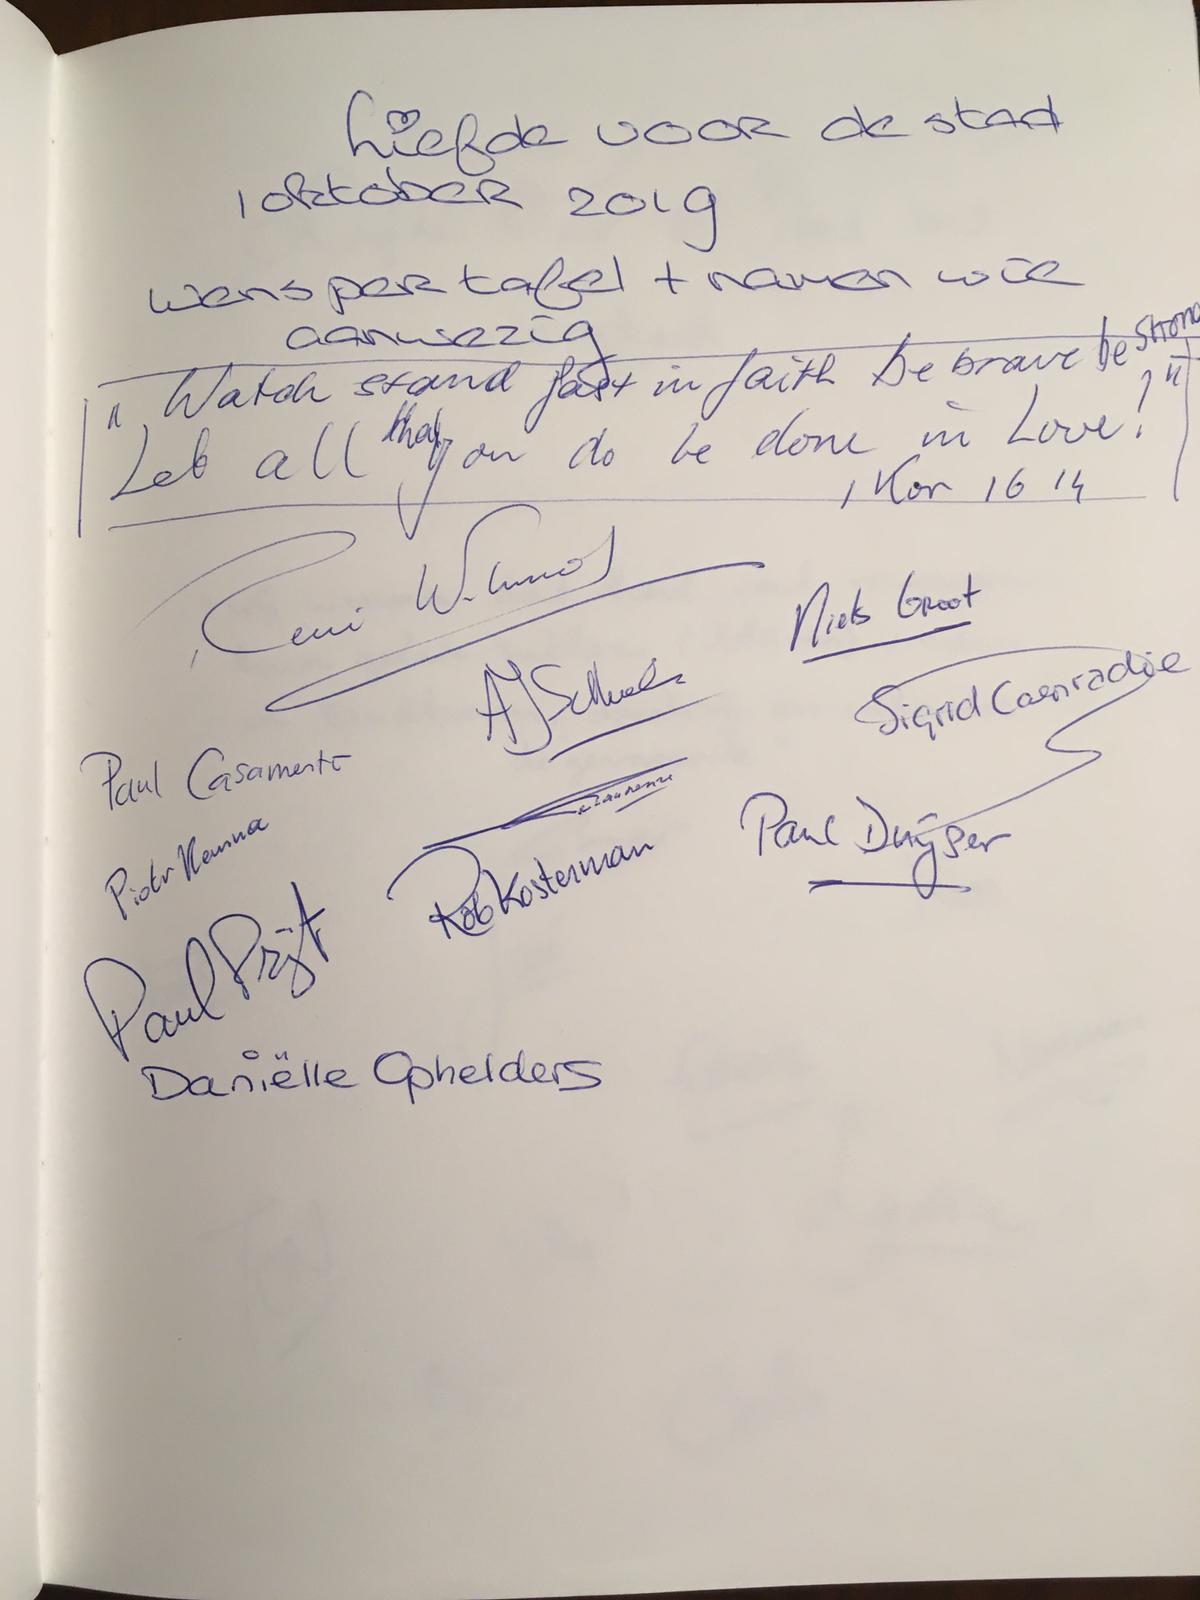 Liefde voor de stad
1 oktober 2019
wens per tafel + namen wie
aanwezig
" Watch stand fast in faith be brave be strong "
Let all that you do be done in Love!
1 Kor 16 14
Niels Groot
Sigrid Coenradie
Paul Casamento
Piotr
Rob Kosterman
Paul Duijser
Paul Prijt
Daniëlle Ophelders